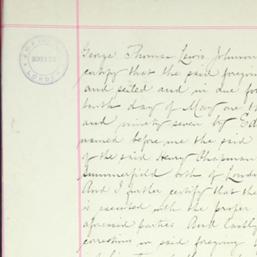 George Thomas Lewis Johnson
certify that the said foregoing
and sealed and in due for
tenth day of May one th
and ninety seven by Ed
named before me the said
of the said Henry Chapman
Summerfield both of London
And I further certify that the
is executed with the proper
aforesaid parties And Lastly
corrections in said foregoing